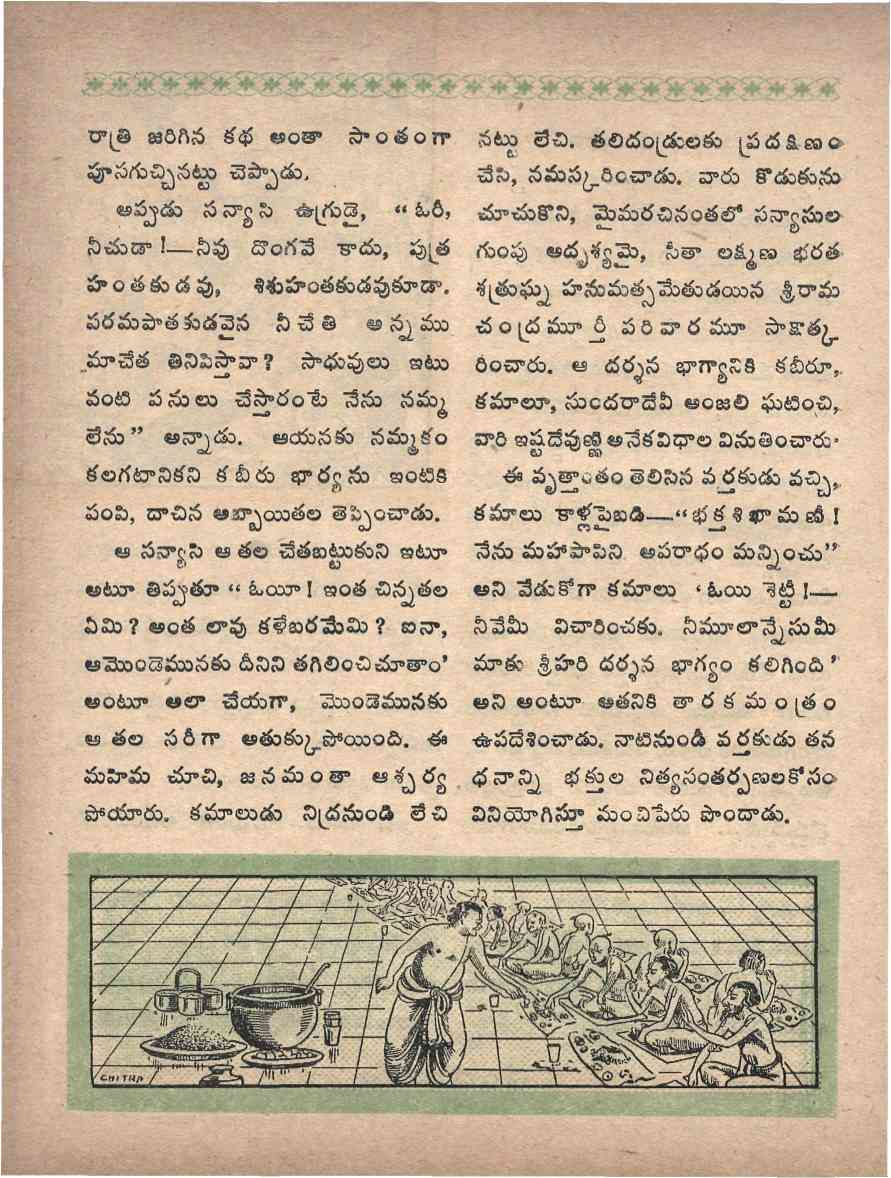 రాత్రి జరిగిన కథ అంతా సాంతంగా
పూసగుచ్చినట్టు చెప్పాడు.
అప్పుడు సన్యాసి ఉగ్రుడై, “ ఓరీ,
నీచుడా !—నీవు దొంగవే కాదు, పుత్ర
హంతకుడవు, శిశుహంతకుడవుకూడా.
పరమపాతకుడవైన నీచేతి అన్నము
మాచేత తినిపిస్తావా ? సాధువులు ఇటు
వంటి పనులు చేస్తారంటే నేను నమ్మ
లేను” అన్నాడు. ఆయనకు నమ్మకం
కలగటానికని కబీరు భార్యను ఇంటికి
పంపి, దాచిన అబ్బాయితల తెప్పించాడు.
ఆ సన్యాసి ఆ తల చేతబట్టుకుని ఇటూ
అటూ తిప్పుతూ “ ఓయీ ! ఇంత చిన్నతల
ఏమి ? అంత లావు కళేబరమేమి ? ఐనా,
ఆమొండెమునకు దీనిని తగిలించిచూతాం’
అంటూ అలా చేయగా, మొండెమునకు
ఆ తల సరీగా అతుక్కుపోయింది. ఈ
మహిమ చూచి, జనమంతా ఆశ్చర్య
పోయారు. కమాలుడు నిద్రనుండి లేచి
నట్టు లేచి. తలిదండ్రులకు ప్రదక్షిణం
చేసి, నమస్కరించాడు. వారు కొడుకును
చూచుకొని, మైమరచినంతలో సన్యాసుల
గుంపు అదృశ్యమై, సీతా లక్ష్మణ భరత
శత్రుఘ్న హనుమత్సమేతుడయిన శ్రీరామ
చంద్రమూర్తీ పరివారమూ సాక్షాత్క
రించారు. ఆ దర్శన భాగ్యానికి కబీరూ,
కమాలూ, సుందరాదేవీ అంజలి ఘటించి,
వారి ఇష్టదేవుణ్ణి అనేకవిధాల వినుతించారు.
ఈ వృత్తాంతం తెలిసిన వర్తకుడు వచ్చి,
కమాలు కాళ్లపైబడి—“భక్తశిఖామణీ !
నేను మహాపాపిని. అపరాధం మన్నించు”
అని వేడుకోగా కమాలు ‘ ఓయి శెట్టీ !—
నీవేమీ విచారించకు. నీమూలాన్నేసుమీ
మాకు శ్రీహరి దర్శన భాగ్యం కలిగింది ’
అని అంటూ ఆతనికి తారకమంత్రం
ఉపదేశించాడు. నాటినుండీ వర్తకుడు తన
ధనాన్ని భక్తుల నిత్యసంతర్పణలకోసం
వినియోగిస్తూ మంచిపేరు పొందాడు.
CHITRA